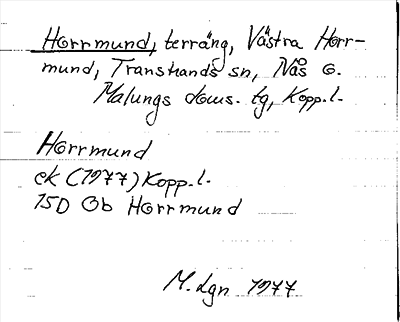 Horrmund, terräng, Västra Horr-
mund, Transtrands sn, Nås o.
Malungs doms. tg, Kopp.l.
Horrmund
ek (1977) Kopp.l.
15D Ob Horrmund
M. Lgn 1977